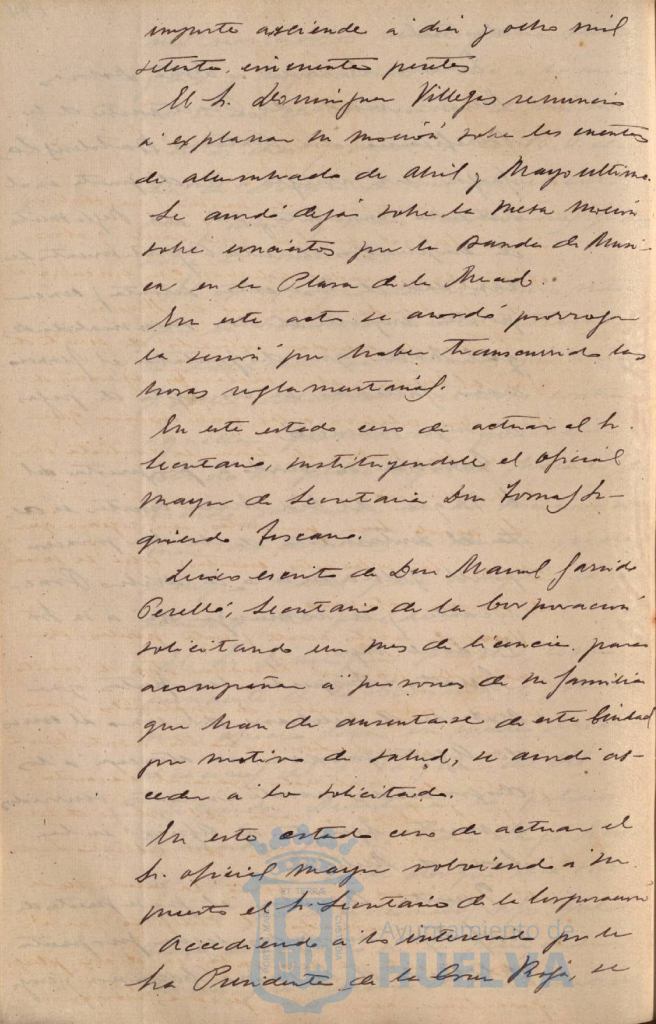 importe asciende a diez y ocho mil
setenta, cincuenta pesetas
El Sr. Dominguez Villegas renunció
a explanar su moción sobre las cuentas
de alumbrado de Abril y Mayo último.
Se acordó dejar sobre la mesa moción
sobre conciertos por la Banda de Músi-
ca en la Plaza de la Merced.
En este acto se acordó prorrogar
la sesión por haber transcurrido las
horas reglamentarias.
En este estado cesó de actuar el Sr.
Secretario, sustituyendole el oficial
mayor de Secretaria Don Tomas Iz-
quierdo Toscano.
Leido escrito de Don Manuel Garrido
Perelló, Secretario de la Corporación
solicitando un mes de licencia para
acompañar a personas de su familia
que han de ausentarse de esta Ciudad
por motivo de salud, se acordó ac-
ceder a lo solicitado.
En este estado cesó de actuar el
Sr. oficial mayor volviendo a su
puesto el Sr. Secretario de la Corporación
Accediendo a lo interesado por la
Sra Presidenta de la Cruz Roja, se
Ayuntamiento de
HUELVA